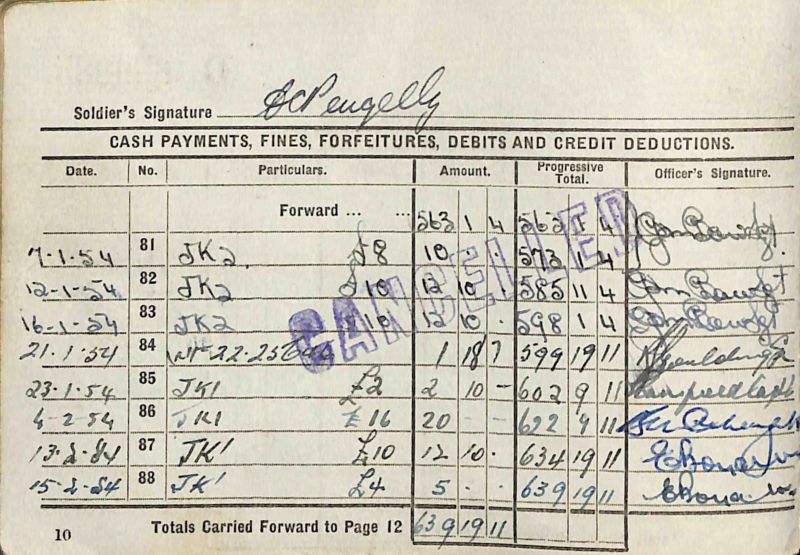 Soldier's Signature Pengelly
CASH PAYMENTS, FINES, FORFEITURES, DEBITS AND CREDIT DEDUCTIONS.
Date. No. Particulars. Amount. Progressive Total. Officer's Signature.
Forward ... ... 563 1 4 563 1 4
7-1-54 81 JK2 £8 10 . . 573 1 4
12-1-54 82 JK2 £10 12 10 . 585 11 4
16-1-54 83 JK2 £10 12 10 . 598 1 4
CANCELLED
21.1.54 84 1 18 7 599 19 11
23.1.54 85 JK1 £2 2 10 - 602 9 11
6-2-54 86 JK1 £16 20 - - 622 9 11
13.2.54 87 JK1 £10 12 10. 634 19 11
15.2.54 88 JK1 £4 5 - - 639 19 11
10 Totals Carried Forward to Page 12 639 19 11